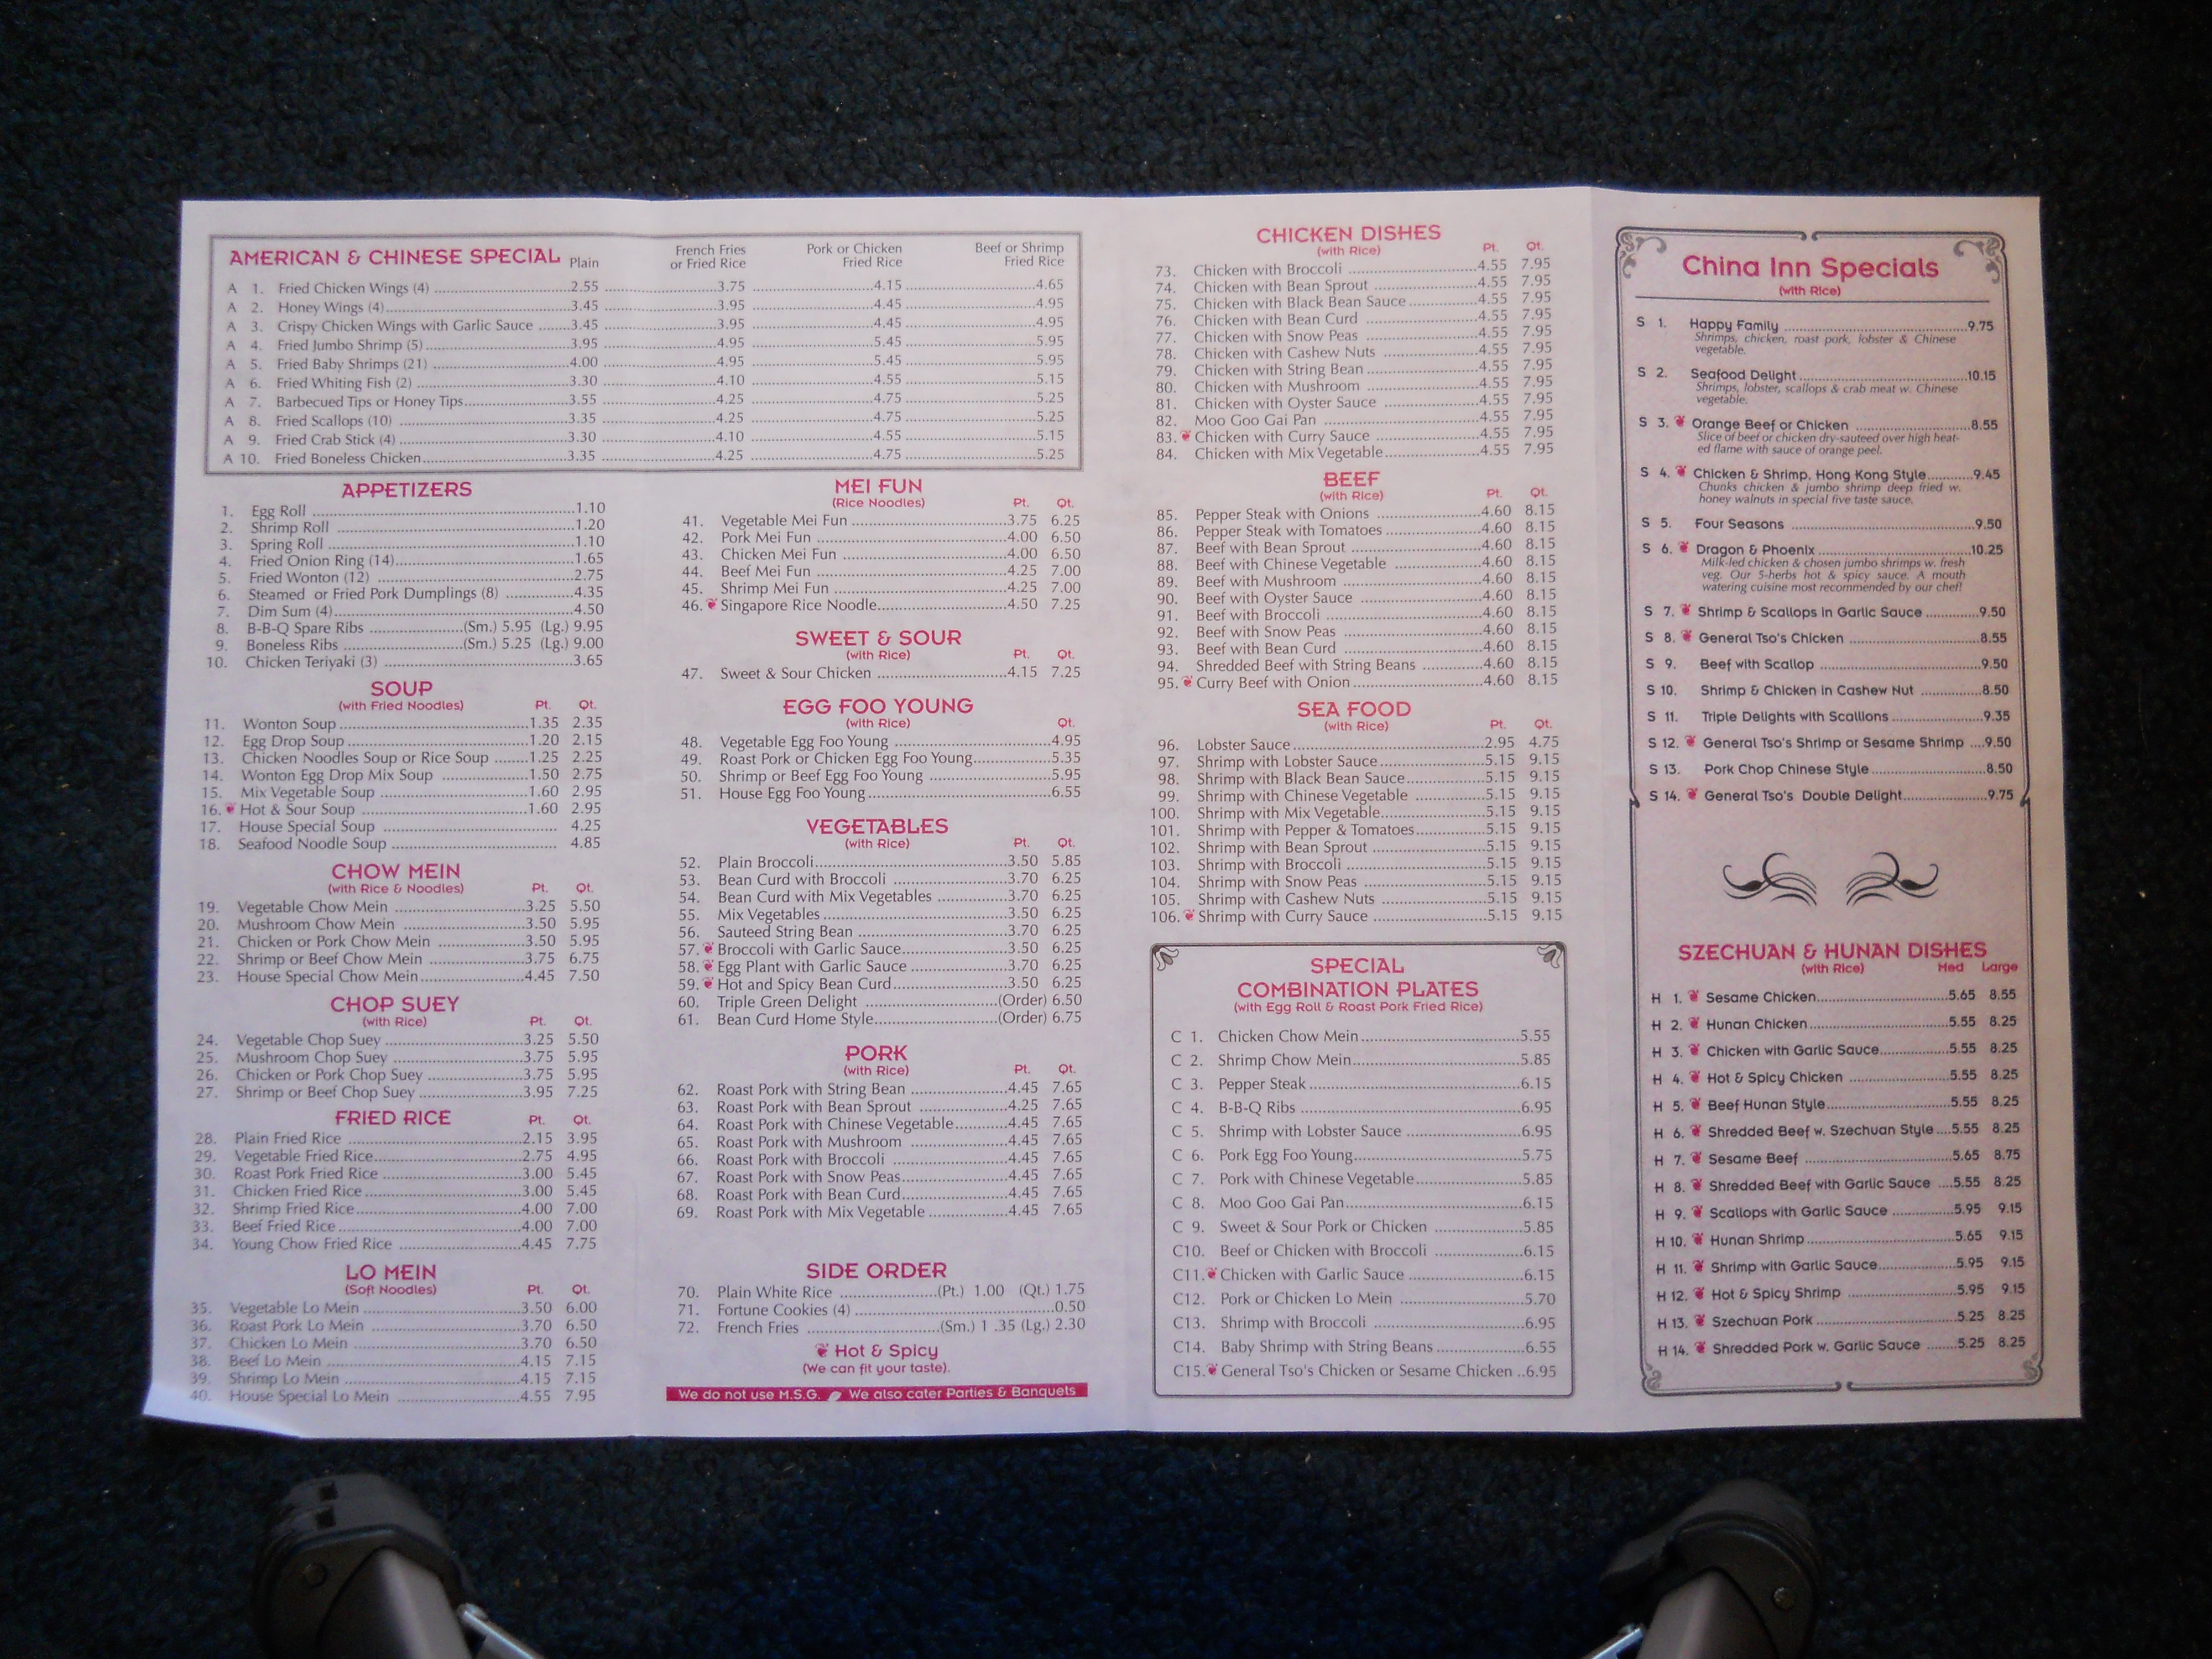 AMERICAN & CHINESE SPECIAL Plain French Fries or Fried Rice Pork or Chicken Fried Rice Beef or Shrimp Fried Rice
A 1. Fried Chicken Wings (4) 2.55 3.75 4.15 4.65
A 2. Honey Wings (4) 3.45 3.95 4.45 4.95
A 3. Crispy Chicken Wings with Garlic Sauce 3.45 3.95 4.45 4.95
A 4. Fried Jumbo Shrimp (5) 3.95 4.95 5.45 5.95
A 5. Fried Baby Shrimps (21) 4.00 4.95 5.45 5.95
A 6. Fried Whiting Fish (2) 3.30 4.10 4.55 5.15
A 7. Barbecued Tips or Honey Tips 3.55 4.25 4.75 5.25
A 8. Fried Scallops (10) 3.35 4.25 4.75 5.25
A 9. Fried Crab Stick (4) 3.30 4.10 4.55 5.15
A 10. Fried Boneless Chicken 3.35 4.25 4.75 5.25
APPETIZERS
1. Egg Roll 1.10
2. Shrimp Roll 1.20
3. Spring Roll 1.10
4. Fried Onion Ring (14) 1.65
5. Fried Wonton (12) 2.75
6. Steamed or Fried Pork Dumplings (8) 4.35
7. Dim Sum (4) 4.50
8. B-B-Q Spare Ribs (Sm.) 5.95 (Lg.) 9.95
9. Boneless Ribs (Sm.) 5.25 (Lg.) 9.00
10. Chicken Teriyaki (3) 3.65
SOUP
(with Fried Noodles) Pt. Qt.
11. Wonton Soup 1.35 2.35
12. Egg Drop Soup 1.20 2.15
13. Chicken Noodles Soup or Rice Soup 1.25 2.25
14. Wonton Egg Drop Mix Soup 1.50 2.75
15. Mix Vegetable Soup 1.60 2.95
16. Hot & Sour Soup 1.60 2.95
17. House Special Soup 4.25
18. Seafood Noodle Soup 4.85
CHOW MEIN
(with Rice & Noodles) Pt. Qt.
19. Vegetable Chow Mein 3.25 5.50
20. Mushroom Chow Mein 3.50 5.95
21. Chicken or Pork Chow Mein 3.50 5.95
22. Shrimp or Beef Chow Mein 3.75 6.75
23. House Special Chow Mein 4.45 7.50
CHOP SUEY
(with Rice) Pt. Qt.
24. Vegetable Chop Suey 3.25 5.50
25. Mushroom Chop Suey 3.75 5.95
26. Chicken or Pork Chop Suey 3.75 5.95
27. Shrimp or Beef Chop Suey 3.95 7.25
FRIED RICE Pt. Qt.
28. Plain Fried Rice 2.15 3.95
29. Vegetable Fried Rice 2.75 4.95
30. Roast Pork Fried Rice 3.00 5.45
31. Chicken Fried Rice 3.00 5.45
32. Shrimp Fried Rice 4.00 7.00
33. Beef Fried Rice 4.00 7.00
34. Young Chow Fried Rice 4.45 7.75
LO MEIN
(Soft Noodles) Pt. Qt.
35. Vegetable Lo Mein 3.50 6.00
36. Roast Pork Lo Mein 3.70 6.50
37. Chicken Lo Mein 3.70 6.50
38. Beef Lo Mein 4.15 7.15
39. Shrimp Lo Mein 4.15 7.15
40. House Special Lo Mein 4.55 7.95
MEI FUN
(Rice Noodles) Pt. Qt.
41. Vegetable Mei Fun 3.75 6.25
42. Pork Mei Fun 4.00 6.50
43. Chicken Mei Fun 4.00 6.50
44. Beef Mei Fun 4.25 7.00
45. Shrimp Mei Fun 4.25 7.00
46. Singapore Rice Noodle 4.50 7.25
SWEET & SOUR
(with Rice) Pt. Qt.
47. Sweet & Sour Chicken 4.15 7.25
EGG FOO YOUNG
(with Rice) Qt.
48. Vegetable Egg Foo Young 4.95
49. Roast Pork or Chicken Egg Foo Young 5.35
50. Shrimp or Beef Egg Foo Young 5.95
51. House Egg Foo Young 6.55
VEGETABLES
(with Rice) Pt. Qt.
52. Plain Broccoli 3.50 5.85
53. Bean Curd with Broccoli 3.70 6.25
54. Bean Curd with Mix Vegetables 3.70 6.25
55. Mix Vegetables 3.50 6.25
56. Sauteed String Bean 3.70 6.25
57. Broccoli with Garlic Sauce 3.50 6.25
58. Egg Plant with Garlic Sauce 3.70 6.25
59. Hot and Spicy Bean Curd 3.50 6.25
60. Triple Green Delight (Order) 6.50
61. Bean Curd Home Style (Order) 6.75
PORK
(with Rice) Pt. Qt.
62. Roast Pork with String Bean 4.45 7.65
63. Roast Pork with Bean Sprout 4.25 7.65
64. Roast Pork with Chinese Vegetable 4.45 7.65
65. Roast Pork with Mushroom 4.45 7.65
66. Roast Pork with Broccoli 4.45 7.65
67. Roast Pork with Snow Peas 4.45 7.65
68. Roast Pork with Bean Curd 4.45 7.65
69. Roast Pork with Mix Vegetable 4.45 7.65
SIDE ORDER
70. Plain White Rice (Pt.) 1.00 (Qt.) 1.75
71. Fortune Cookies (4) 0.50
72. French Fries (Sm.) 1 .35 (Lg.) 2.30
Hot & Spicy
(We can fit your taste).
We do not use M.S.G. We also cater Parties & Banquets
CHICKEN DISHES
(with Rice) Pt. Qt.
73. Chicken with Broccoli 4.55 7.95
74. Chicken with Bean Sprout 4.55 7.95
75. Chicken with Black Bean Sauce 4.55 7.95
76. Chicken with Bean Curd 4.55 7.95
77. Chicken with Snow Peas 4.55 7.95
78. Chicken with Cashew Nuts 4.55 7.95
79. Chicken with String Bean 4.55 7.95
80. Chicken with Mushroom 4.55 7.95
81. Chicken with Oyster Sauce 4.55 7.95
82. Moo Goo Gai Pan 4.55 7.95
83. Chicken with Curry Sauce 4.55 7.95
84. Chicken with Mix Vegetable 4.55 7.95
BEEF
(with Rice) Pt. Qt.
85. Pepper Steak with Onions 4.60 8.15
86. Pepper Steak with Tomatoes 4.60 8.15
87. Beef with Bean Sprout 4.60 8.15
88. Beef with Chinese Vegetable 4.60 8.15
89. Beef with Mushroom 4.60 8.15
90. Beef with Oyster Sauce 4.60 8.15
91. Beef with Broccoli 4.60 8.15
92. Beef with Snow Peas 4.60 8.15
93. Beef with Bean Curd 4.60 8.15
94. Shredded Beef with String Beans 4.60 8.15
95. Curry Beef with Onion 4.60 8.15
SEA FOOD
(with Rice) Pt. Qt.
96. Lobster Sauce 2.95 4.75
97. Shrimp with Lobster Sauce 5.15 9.15
98. Shrimp with Black Bean Sauce 5.15 9.15
99. Shrimp with Chinese Vegetable 5.15 9.15
100. Shrimp with Mix Vegetable 5.15 9.15
101. Shrimp with Pepper & Tomatoes 5.15 9.15
102. Shrimp with Bean Sprout 5.15 9.15
103. Shrimp with Broccoli 5.15 9.15
104. Shrimp with Snow Peas 5.15 9.15
105. Shrimp with Cashew Nuts 5.15 9.15
106. Shrimp with Curry Sauce 5.15 9.15
SPECIAL
COMBINATION PLATES
(with Egg Roll & Roast Pork Fried Rice)
C 1. Chicken Chow Mein 5.55
C 2. Shrimp Chow Mein 5.85
C 3. Pepper Steak 6.15
C 4. B-B-Q Ribs 6.95
C 5. Shrimp with Lobster Sauce 6.95
C 6. Pork Egg Foo Young 5.75
C 7. Pork with Chinese Vegetable 5.85
C 8. Moo Goo Gai Pan 6.15
C 9. Sweet & Sour Pork or Chicken 5.85
C10. Beef or Chicken with Broccoli 6.15
C11. Chicken with Garlic Sauce 6.15
C12. Pork or Chicken Lo Mein 5.70
C13. Shrimp with Broccoli 6.95
C14. Baby Shrimp with String Beans 6.55
C15. General Tso's Chicken or Sesame Chicken 6.95
China Inn Specials
(with Rice)
S 1. Happy Family 9.75
Shrimps, chicken, roast pork, lobster & Chinese
vegetable.
S 2. Seafood Delight 10.15
Shrimps, lobster, scallops & crab meat w. Chinese
vegetable.
S 3. Orange Beef or Chicken 8.55
Slice of beef or chicken dry-sauteed over high heat-
ed flame with sauce of orange peel.
S 4. Chicken & Shrimp, Hong Kong Style 9.45
Chunks chicken & jumbo shrimp deep fried w.
honey walnuts in special five taste sauce.
S 5. Four Seasons 9.50
S 6. Dragon & Phoenix 10.25
Milk-fed chicken & chosen jumbo shrimps w. fresh
veg. Our 5-herbs hot & spicy sauce. A mouth
watering cuisine most recommended by our chef!
S 7. Shrimp & Scallops in Garlic Sauce 9.50
S 8. General Tso's Chicken 8.55
S 9. Beef with Scallop 9.50
S 10. Shrimp & Chicken in Cashew Nut 8.50
S 11. Triple Delights with Scallions 9.35
S 12. General Tso's Shrimp or Sesame Shrimp 9.50
S 13. Pork Chop Chinese Style 8.50
S 14. General Tso's Double Delight 9.75
SZECHUAN & HUNAN DISHES
(with Rice) Med Large
H 1. Sesame Chicken 5.65 8.55
H 2. Hunan Chicken 5.55 8.25
H 3. Chicken with Garlic Sauce 5.55 8.25
H 4. Hot & Spicy Chicken 5.55 8.25
H 5. Beef Hunan Style 5.55 8.25
H 6. Shredded Beef w. Szechuan Style 5.55 8.25
H 7. Sesame Beef 5.65 8.75
H 8. Shredded Beef with Garlic Sauce 5.55 8.25
H 9. Scallops with Garlic Sauce 5.95 9.15
H 10. Hunan Shrimp 5.65 9.15
H 11. Shrimp with Garlic Sauce 5.95 9.15
H 12. Hot & Spicy Shrimp 5.95 9.15
H 13. Szechuan Pork 5.25 8.25
H 14. Shredded Pork w. Garlic Sauce 5.25 8.25